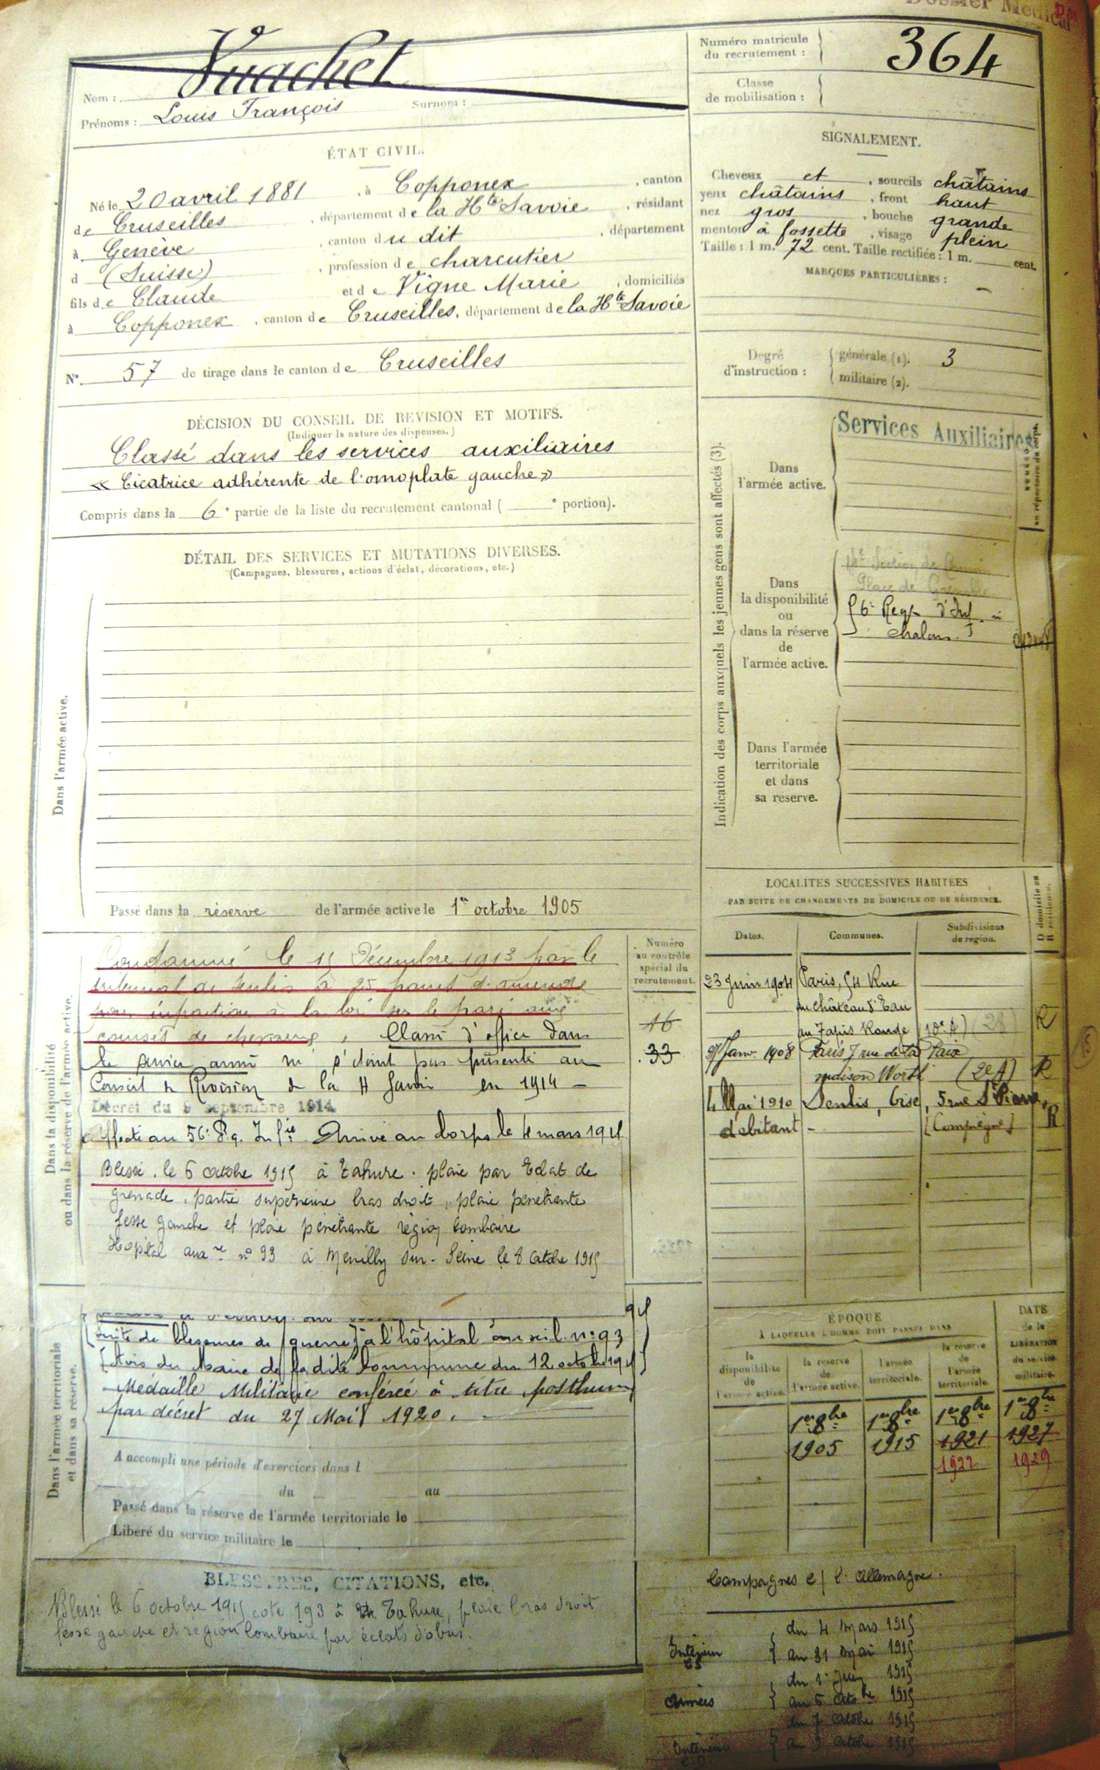 Dossier Médical
Nom : Vuachet
Prénoms : Louis François Surnom :
Numéro matricule
du recrutement : 364
Classe
de mobilisation :
ÉTAT CIVIL.
Né le 20 avril 1881 , à Copponex , canton
de Cruseilles , département de la Hte Savoie , résidant
à Genève , canton du dit , département
d (Suisse) , profession de charcutier
fils de Claude et de Vigne Marie , domiciliés
à Copponex , canton de Cruseilles, département de la Hte Savoie
N° 57 de tirage dans le canton de Cruseilles
SIGNALEMENT.
Cheveux et , sourcils châtains
yeux châtains , front haut
nez gros , bouche grande
menton à fossette , visage plein
Taille : 1 m. 72 cent. Taille rectifiée : 1 m. cent.
MARQUES PARTICULIÈRES :
Degré
d'instruction :
générale (1). 3
militaire (2).
DÉCISION DU CONSEIL DE REVISION ET MOTIFS.
(Indiquer la nature des dispenses.)
Classé dans les services auxiliaires
« Cicatrice adhérente de l'omoplate gauche »
Compris dans la 6e partie de la liste du recrutement cantonal ( e portion).
DÉTAIL DES SERVICES ET MUTATIONS DIVERSES.
(Campagnes, blessures, actions d'éclat, décorations, etc.)
Dans l'armée active.
Passé dans la réserve de l'armée active le 1er octobre 1905
Indication des corps auxquels les jeunes gens sont affectés (3).
Dans
l'armée active.
Services Auxiliaires
Dans
la disponibilité
ou
dans la réserve
de
l'armée active.
Place de Grenoble
56e Reg d'Inf à
chalon
Dans l'armée
territoriale
et dans
sa reserve.
Dans la disponibilité
ou dans la réserve de l'armée active.
Condamné le 11 Décembre 1913 par le
tribunal de Senlis à 25 francs d'amende
pour infraction à la loi sur le pari aux
courses de chevaux, Classé d'office dans
le service armé ne s'étant pas présenté au
Conseil de Révision de la Hte Savoie en 1914
Décret du 9 septembre 1914
Affecté au 56e Rg. Infie Arrivé au Corps le 4 mars 1915
Blessé le 6 octobre 1915 à Tahure. plaie par Eclat de
grenade, partie supérieure bras droit, plaie pénétrante
fesse gauche et plaie pénétrante région lombaire
Hopital auxre n° 93 à Neuilly sur-Seine le 8 Octobre 1915
Numéro
au contrôle
spécial du
recrutement.
16
33
LOCALITÉS SUCCESSIVES HABITÉES
PAR SUITE DE CHANGEMENTS DE DOMICILE OU DE RÉSIDENCE.
Dates. Communes. Subdivisions
de région.
D domicile ou
R résidence.
23 Juin 1904 Paris, 54 Rue
du château d'Eau
au Tapis Rouge (10e A) R
27 Janv. 1908 Paris 7 rue de la Paix
maison Worth (2e A) R
4 Mai 1910 Senlis, Oise, 5 rue St Pierre,
débitant - (Compiègne) R
Dans l'armée territoriale
et dans sa réserve.
suite de blessures de guerre à l'hôpital auxil. n° 93
(Avis du Maire de ladite Commune du 12 octobre 1915)
Médaille Militaire conférée à titre posthume
par décret du 27 Mai 1920.
A accompli une période d'exercices dans l
du au
Passé dans la réserve de l'armée territoriale le
Libéré du service militaire le
ÉPOQUE
À LAQUELLE L'HOMME DOIT PASSER DANS
DATE
de la
LIBÉRATION
du service
militaire.
la
disponibilité
de
l'armée active.
la réserve
de
l'armée active.
l'armée
territoriale.
la réserve
de
l'armée
territoriale.
1er 8bre 1er 8bre 1er 8bre 1er 8bre
1905 1915 1921 1927
1922 1929
BLESSURES, CITATIONS, etc.
Blessé le 6 octobre 1915 cote 193 à Tahure, plaie bras droit
fesse gauche et région lombaire par éclats d'obus.
Campagnes c/ l'Allemagne.
Intérieur du 4 Mars 1915
au 31 Mai 1915
Armées du 1er Juin 1915
au 6 Octobre 1915
Intérieur du 7 Octobre 1915
au 9 Octobre 1915